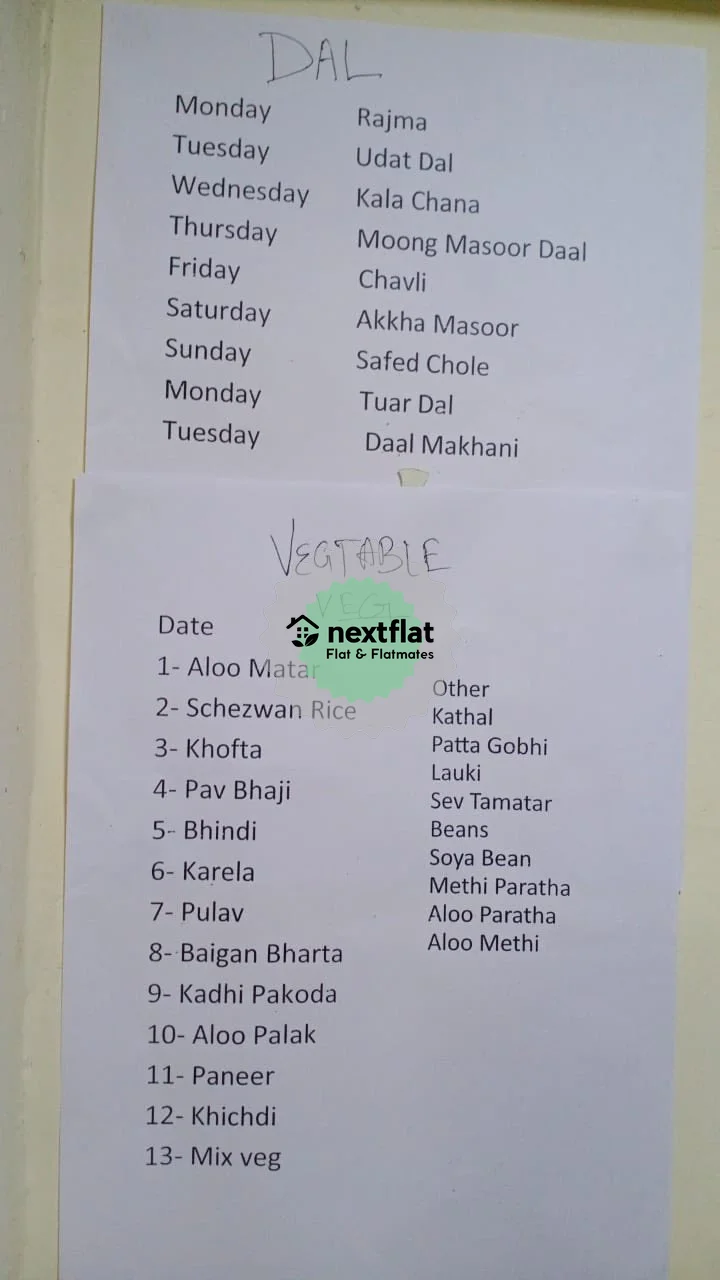 DAL
Monday Rajma
Tuesday Udat Dal
Wednesday Kala Chana
Thursday Moong Masoor Daal
Friday Chavli
Saturday Akkha Masoor
Sunday Safed Chole
Monday Tuar Dal
Tuesday Daal Makhani
VEGTABLE
VEG
nextflat
Flat & Flatmates
Date
1- Aloo Matar
2- Schezwan Rice
3- Khofta
4- Pav Bhaji
5- Bhindi
6- Karela
7- Pulav
8- Baigan Bharta
9- Kadhi Pakoda
10- Aloo Palak
11- Paneer
12- Khichdi
13- Mix veg
Other
Kathal
Patta Gobhi
Lauki
Sev Tamatar
Beans
Soya Bean
Methi Paratha
Aloo Paratha
Aloo Methi